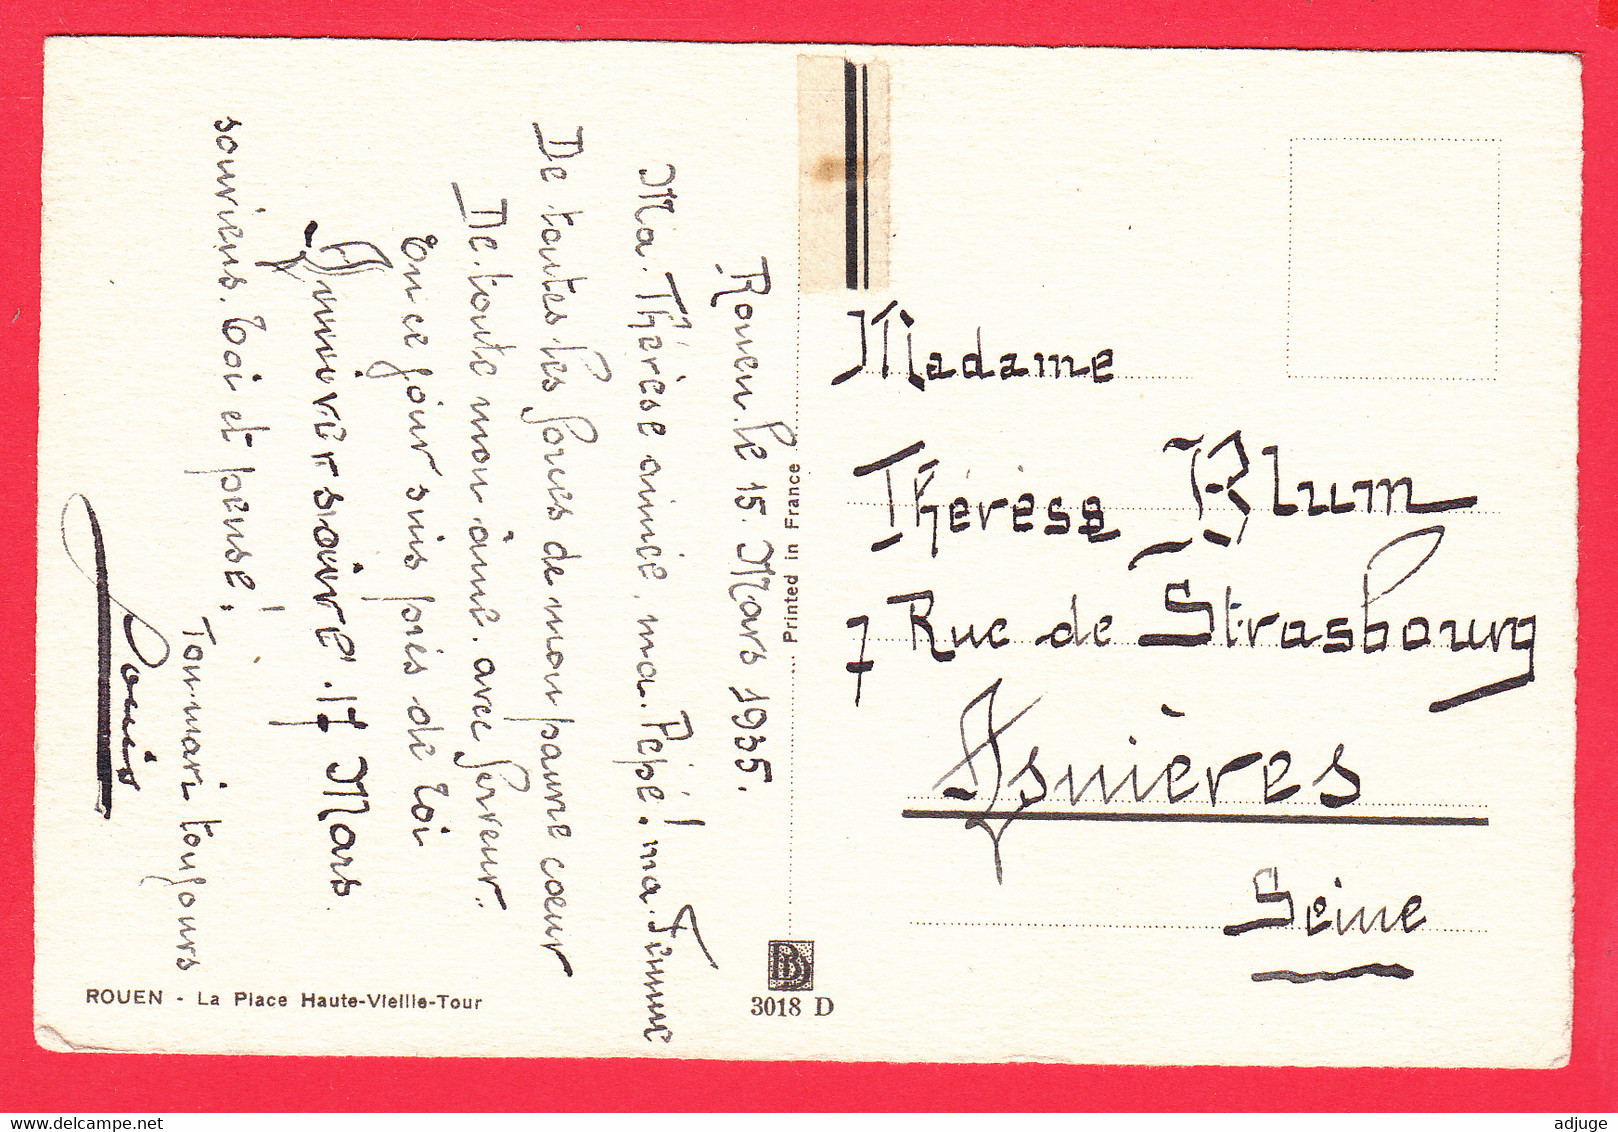 Rouen. le 15. Mars 1935.
Ma. Thérèse aimée, ma. Pépé! ma. Femme
De toutes les forces de mon pauvre cœur
De. toute mon âme. avec ferveur.
En ce jour suis près de toi
Anniversaire. 17 Mars
souviens. toi et pense!
Ton mari toujours
Louis
ROUEN - La Place Haute-Vieille-Tour
Printed in France
BD
3018 D
Madame
Thérèse Blum
7 Rue de Strasbourg
Asnières
Seine
adjuge